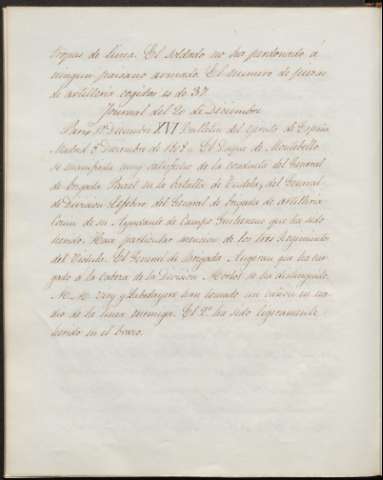 tropas de línea. El soldado no ha perdonado á
ningun paisano armado. El numero de piezas
de artilleria cogidas es de 37.
Journal del 20 de Diciembre
Paris 19 Diciembre XVI Bulletin del egercito de España
Madrid 5 Diciembre de 1808. El Duque de Montebello
se manifiesta muy satisfecho de la conducta del General
de brigada Pouzet en la batalla de Tudela, del General
de Division Lefebre del General de brigada de artilleria
Couin de su Ayudante de Campo Gueheneuc que ha sido
herido. Hace particular mencion de los tres Regimientos
del Vistula. El General de brigada Augereau que ha car
gado á la cabeza de la Division Morlot se ha distinguido.
M. M. Viry y Labedoyere han tomado un cañon en me
dio de la linea enemiga. El 2º ha sido ligeramente
herido en el brazo.